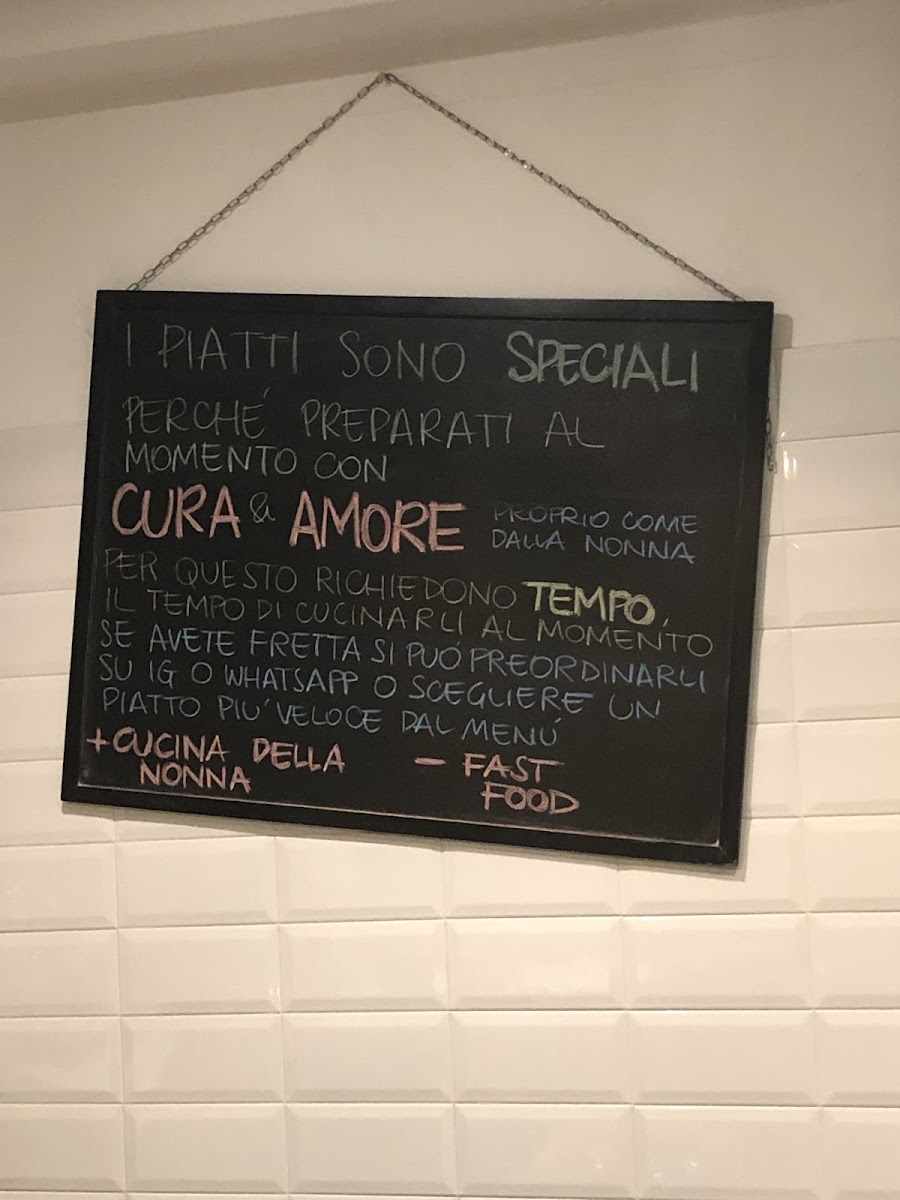 I PIATTI SONO SPECIALI
PERCHÉ PREPARATI AL
MOMENTO CON
CURA & AMORE
PROPRIO COME
DALLA NONNA
PER QUESTO RICHIEDONO TEMPO,
IL TEMPO DI CUCINARLI AL MOMENTO
SE AVETE FRETTA SI PUÓ PREORDINARLI
SU IG O WHATSAPP O SCEGLIERE UN
PIATTO PIU' VELOCE DAL MENÚ
+ CUCINA DELLA
NONNA
- FAST
FOOD